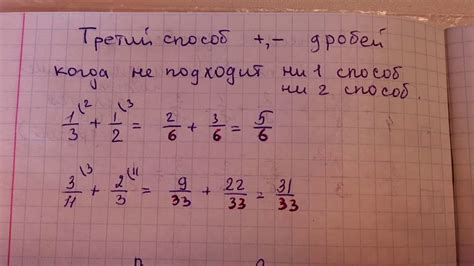 Третий способ +,- дробей
когда не подходит ни 1 способ
ни 2 способ.
1/3 (2 + 1/2 (3 = 2/6 + 3/6 = 5/6
3/11 (3 + 2/3 (11 = 9/33 + 22/33 = 31/33